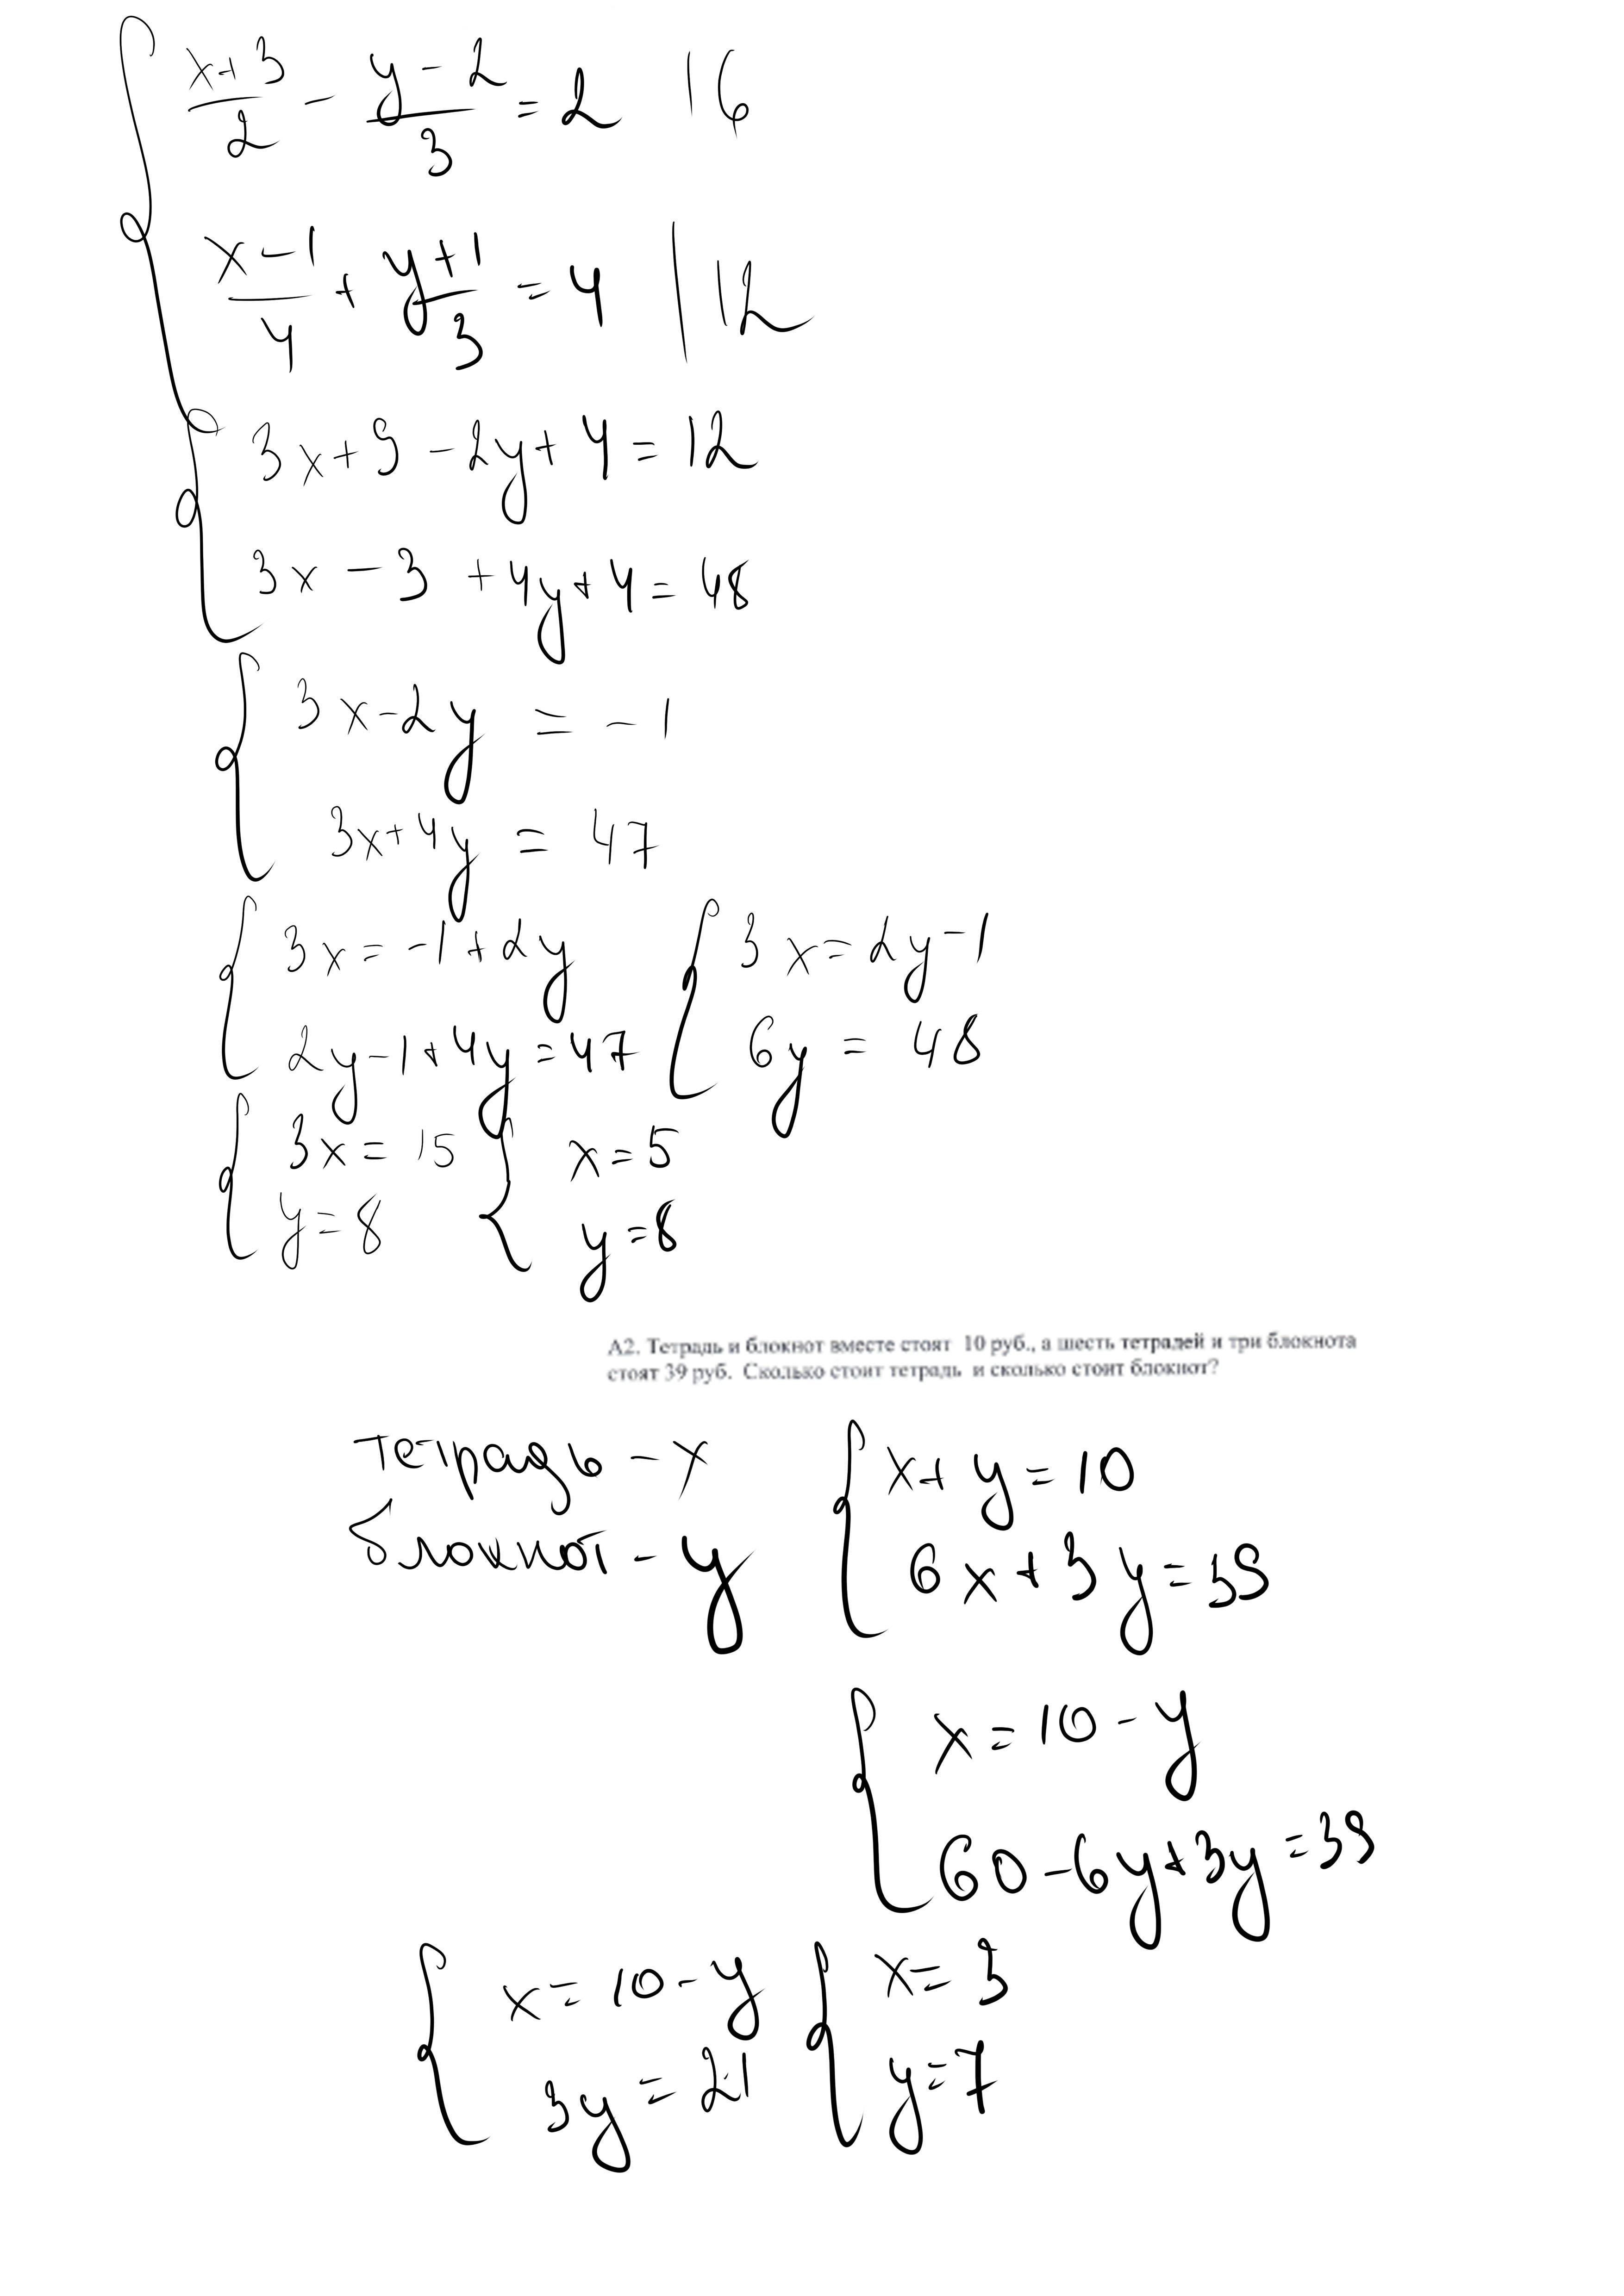 x+3/2 - y-2/3 = 2 | 6
x-1/4 + y+1/3 = 4 | 12
3x+9-2y+4=12
3x-3+4y+4=48
3x-2y = -1
3x+4y = 47
3x=-1+2y
2y-1+4y=47
3x=2y-1
6y = 48
3x=15
y=8
x=5
y=8
А2. Тетрадь и блокнот вместе стоят 10 руб., а шесть тетрадей и три блокнота
стоят 39 руб. Сколько стоит тетрадь и сколько стоит блокнот?
тетрадь - x
блокнот - y
x+y=10
6x+3y=39
x=10-y
60-6y+3y=39
x=10-y
3y=21
x=3
y=7